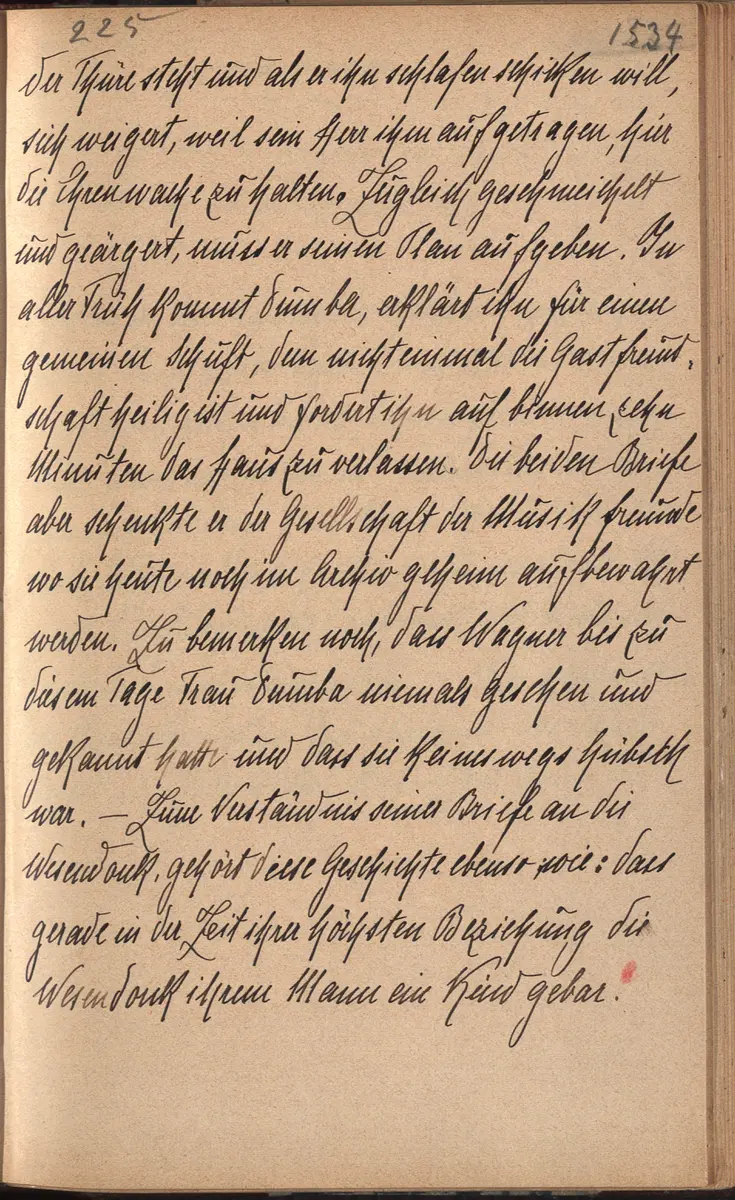 225
1534
der Thüre steht und als er ihn schlafen schicken will,
sich weigert, weil sein Herr ihm aufgetragen, hier
die Ehrenwache zu halten. Zugleich geschmeichelt
und geärgert, muss er seinen Plan aufgeben. In
aller Früh kommt Dumba, erklärt ihn für einen
gemeinen Schuft, dem nicht einmal die Gastfreund-
schaft heilig ist und fordert ihn auf binnen zehn
Minuten das Haus zu verlassen. Die beiden Briefe
aber schenkte er der Gesellschaft der Musikfreunde
wo sie heute noch im Archiv geheim aufbewahrt
werden. Zu bemerken noch, dass Wagner bis zu
diesem Tage Frau Dumba niemals gesehen und
gekannt hatte und dass sie keineswegs hübsch
war. — Zum Verständnis seiner Briefe an die
Wesendonk. gehört diese Geschichte ebenso wie: dass
gerade in der Zeit ihrer höchsten Beziehung die
Wesendonk ihrem Mann ein Kind gebar.